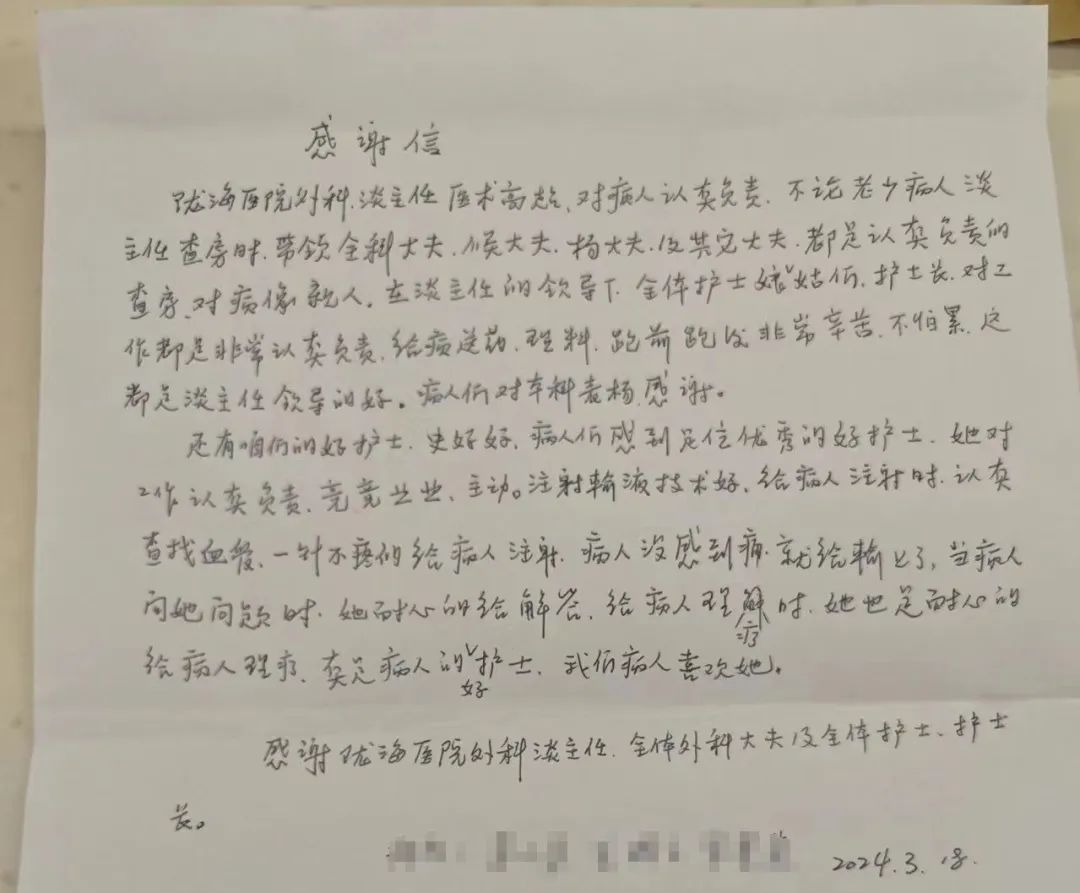 感谢信
陇海医院外科.淡主任医术高超、对病人认真负责.不论老少病人淡
主任查房时.带领全科大夫.候大夫.杨大夫.及其它大夫.都是认真负责的
查房.对病像亲人.在淡主任的领导下.全体护士姑娘们.护士长.对工
作都是非常认真负责.给病送药.理料.跑前跑后非常辛苦.不怕累.这
都是淡主任领导的好。病人们对本科表杨.感谢。
还有咱们的好护士.史好好.病人们感到是位优秀的好护士.她对
工作认真负责.竞竞业业、主动。注射输液技术好.给病人注射时.认真
查找血管、一针不疼的给病人注射.病人没感到痛.就给输上了,当病人
问她问题时.她耐心的给解答.给病人理疗时.她也是耐心的
给病人理疗、真是病人的好护士.我们病人喜欢她。
感谢陇海医院外科淡主任.全体外科大夫及全体护士、护士
长。
2024.3.18.